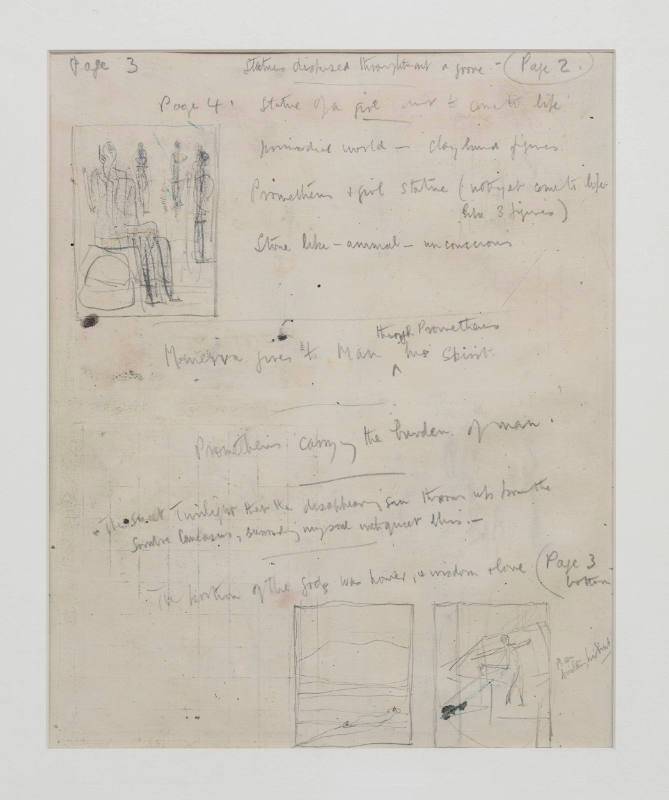 Page 3
Statues dispersed throughout a grove - (Page 2.)
Page 4. Statue of a girl not to come to life
primordial world - clay bound figures
Prometheus & girl statue (not yet come to life
like 3 figures)
Stone like - animal - unconscious
through Prometheus
Minerva gives to Man his Spirit.
Prometheus carrying the burden of man.
The sweet Twilight that the disappearing sun throws up from the
Caucasus, my soul quiet
The portion of the gods was power, & wisdom & love (Page 3
bottom